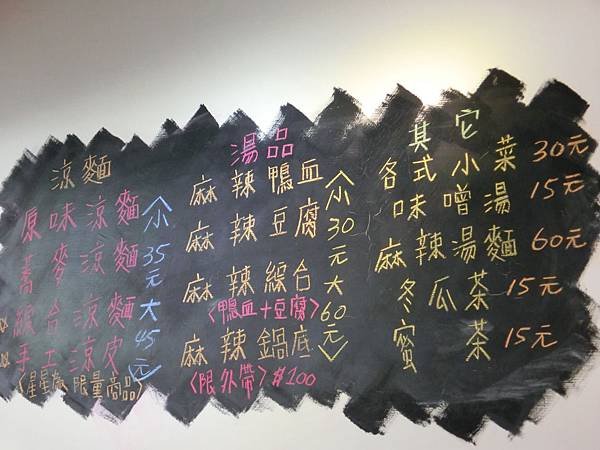 涼麵
原味涼麵
蕎麥涼麵
綜合涼麵
手工涼皮
<限量商品>
<小35元大45元>
湯品
麻辣鴨血
麻辣豆腐
麻辣綜合
<鴨血+豆腐>
麻辣鍋底
<限外帶>$100
<小30元大60元>
其它
各式小菜 30元
味噌湯 15元
麻辣湯麵 60元
冬瓜茶 15元
蜜茶 15元